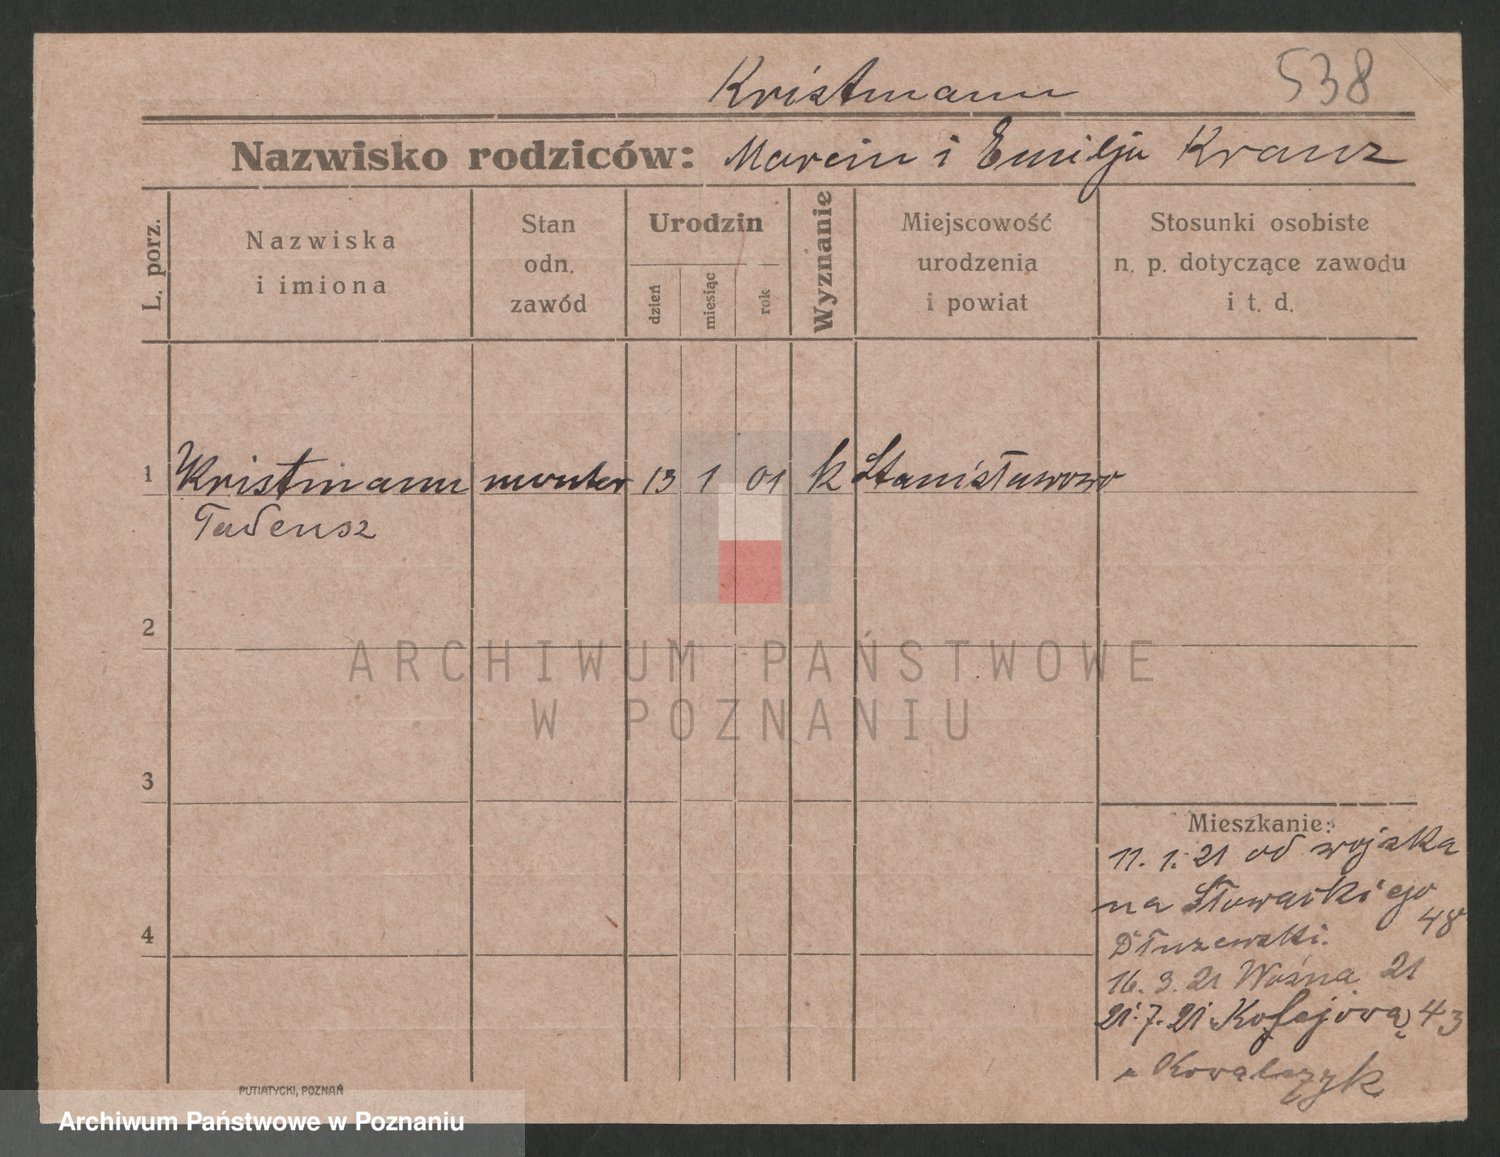 Kristmann 538
Nazwisko rodziców: Marcin i Emilja Kranz
L. porz.
Nazwiska
i imiona
Stan
odn.
zawód
Urodzin
dzień
miesiąc
rok
Wyznanie
Miejscowość
urodzenia
i powiat
Stosunki osobiste
n. p. dotyczące zawodu
i t. d.
1 Kristmann monter 13 1 01 k Stanisławowo
Tadeusz
2
3
4
Mieszkanie:
11. 1. 21 od wojska
na Słowackiego
48
Dłuzewski.
16. 3. 21 Woźna 21
21. 7. 21 Kolejową 43
Kowalczyk
PUTIATYCKI, POZNAŃ
ARCHIWUM PAŃSTWOWE
W POZNANIU
Archiwum Państwowe w Poznaniu